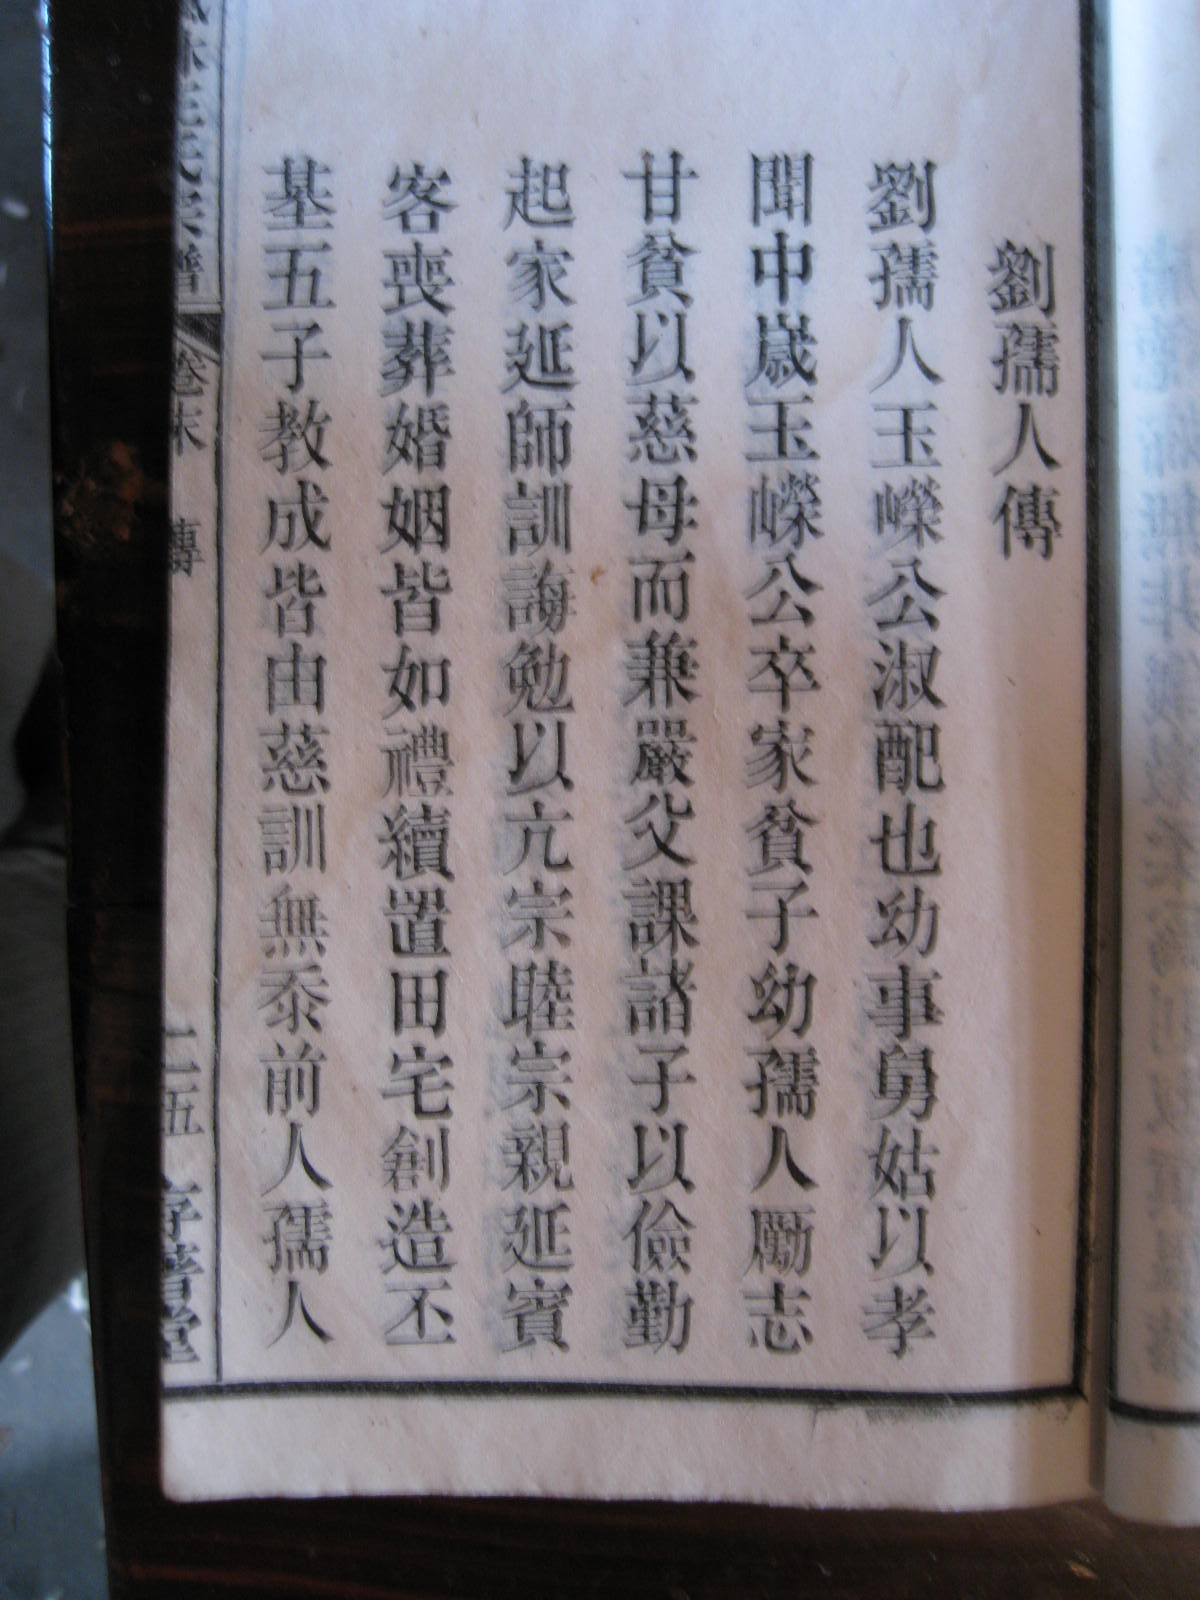 劉孺人傳
劉孺人玉嶸公淑配也幼事舅姑以孝
聞中嵗玉嶸公卒家貧子幼孺人勵志
甘貧以慈母而兼嚴父課諸子以儉勤
起家延師訓誨勉以亢宗睦宗親延賓
客喪葬婚姻皆如禮續置田宅創造丕
基五子教成皆由慈訓無忝前人孺人
氏宗譜
卷末
傳